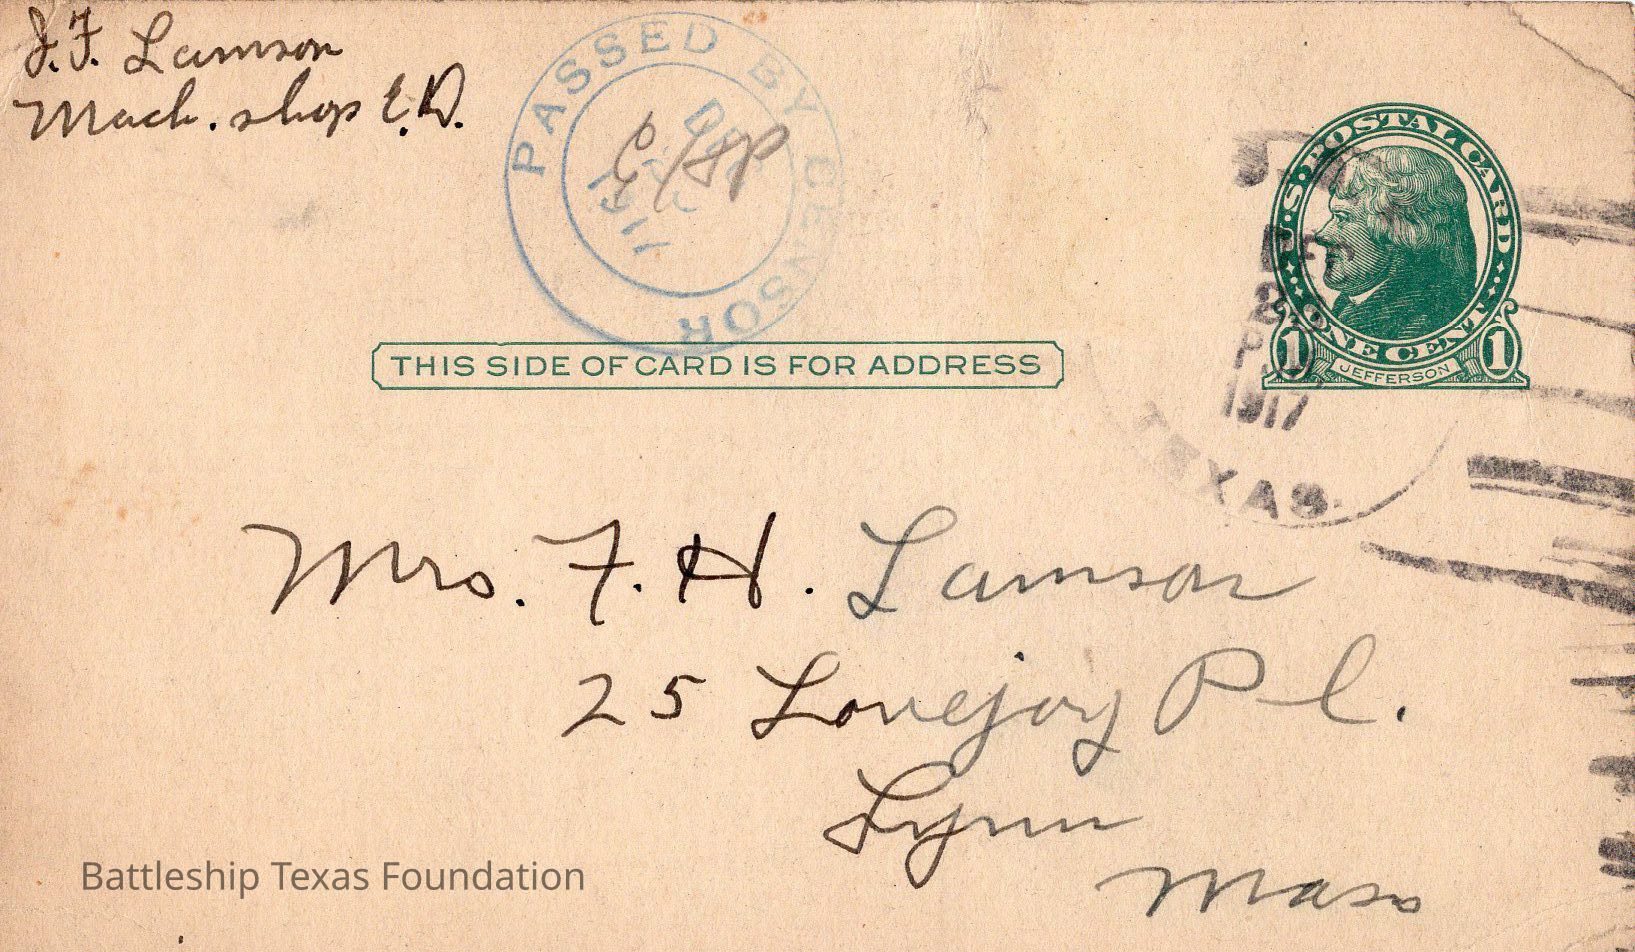 J.F. Lamson
Mach. shop E.D.
PASSED BY CENSOR
DEC
1917
U.S. POSTAL CARD
ONE CENT
1 JEFFERSON 1
THIS SIDE OF CARD IS FOR ADDRESS
DEC
26
1917
TEXAS
Mrs. F. H. Lamson
25 Lovejoy Pl.
Lynn
Mass
Battleship Texas Foundation